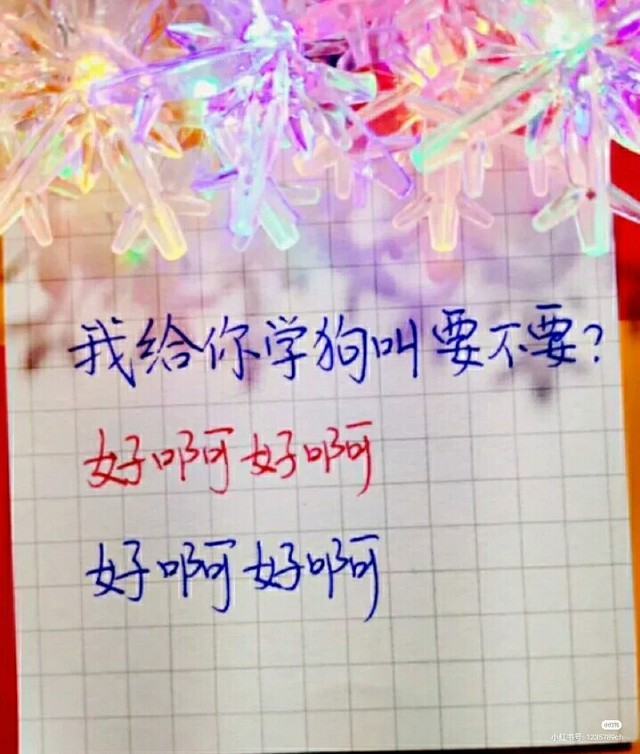 我给你学狗叫要不要?
好啊好啊
好啊好啊
小红书
小红书号: 1235789ch